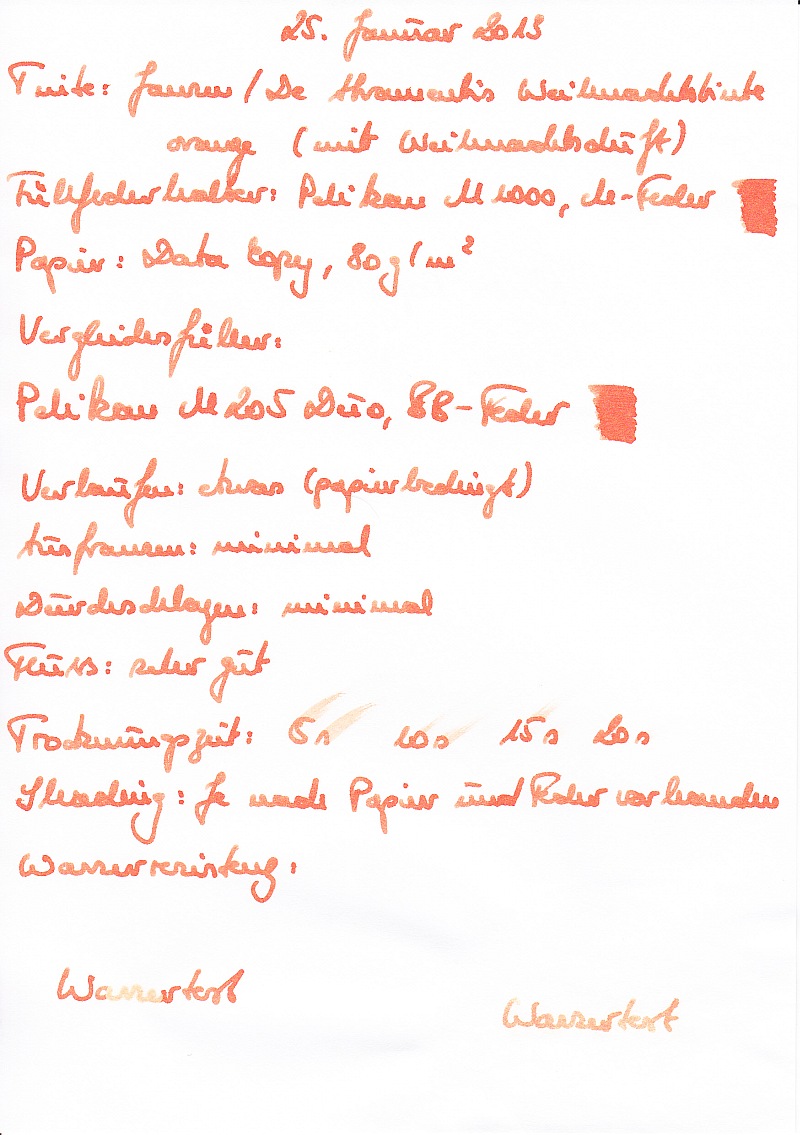 25. Januar 2013
Tinte: Jansen / De Atramentis Weihnachtstinte
orange (mit Weihnachtsduft)
Füllfederhalter: Pelikan M 1000, M-Feder
Papier: Data Copy, 80g/m²
Vergleichsfüller:
Pelikan M 205 Duo, BB-Feder
Verlaufen: etwas (papierbedingt)
Ausfransen: minimal
Durchschlagen: minimal
Fluss: sehr gut
Trocknungszeit: 5s 10s 15s 20s
Shading: Je nach Papier und Feder vorhanden
Wasserresistenz:
Wassertest
Wassertest